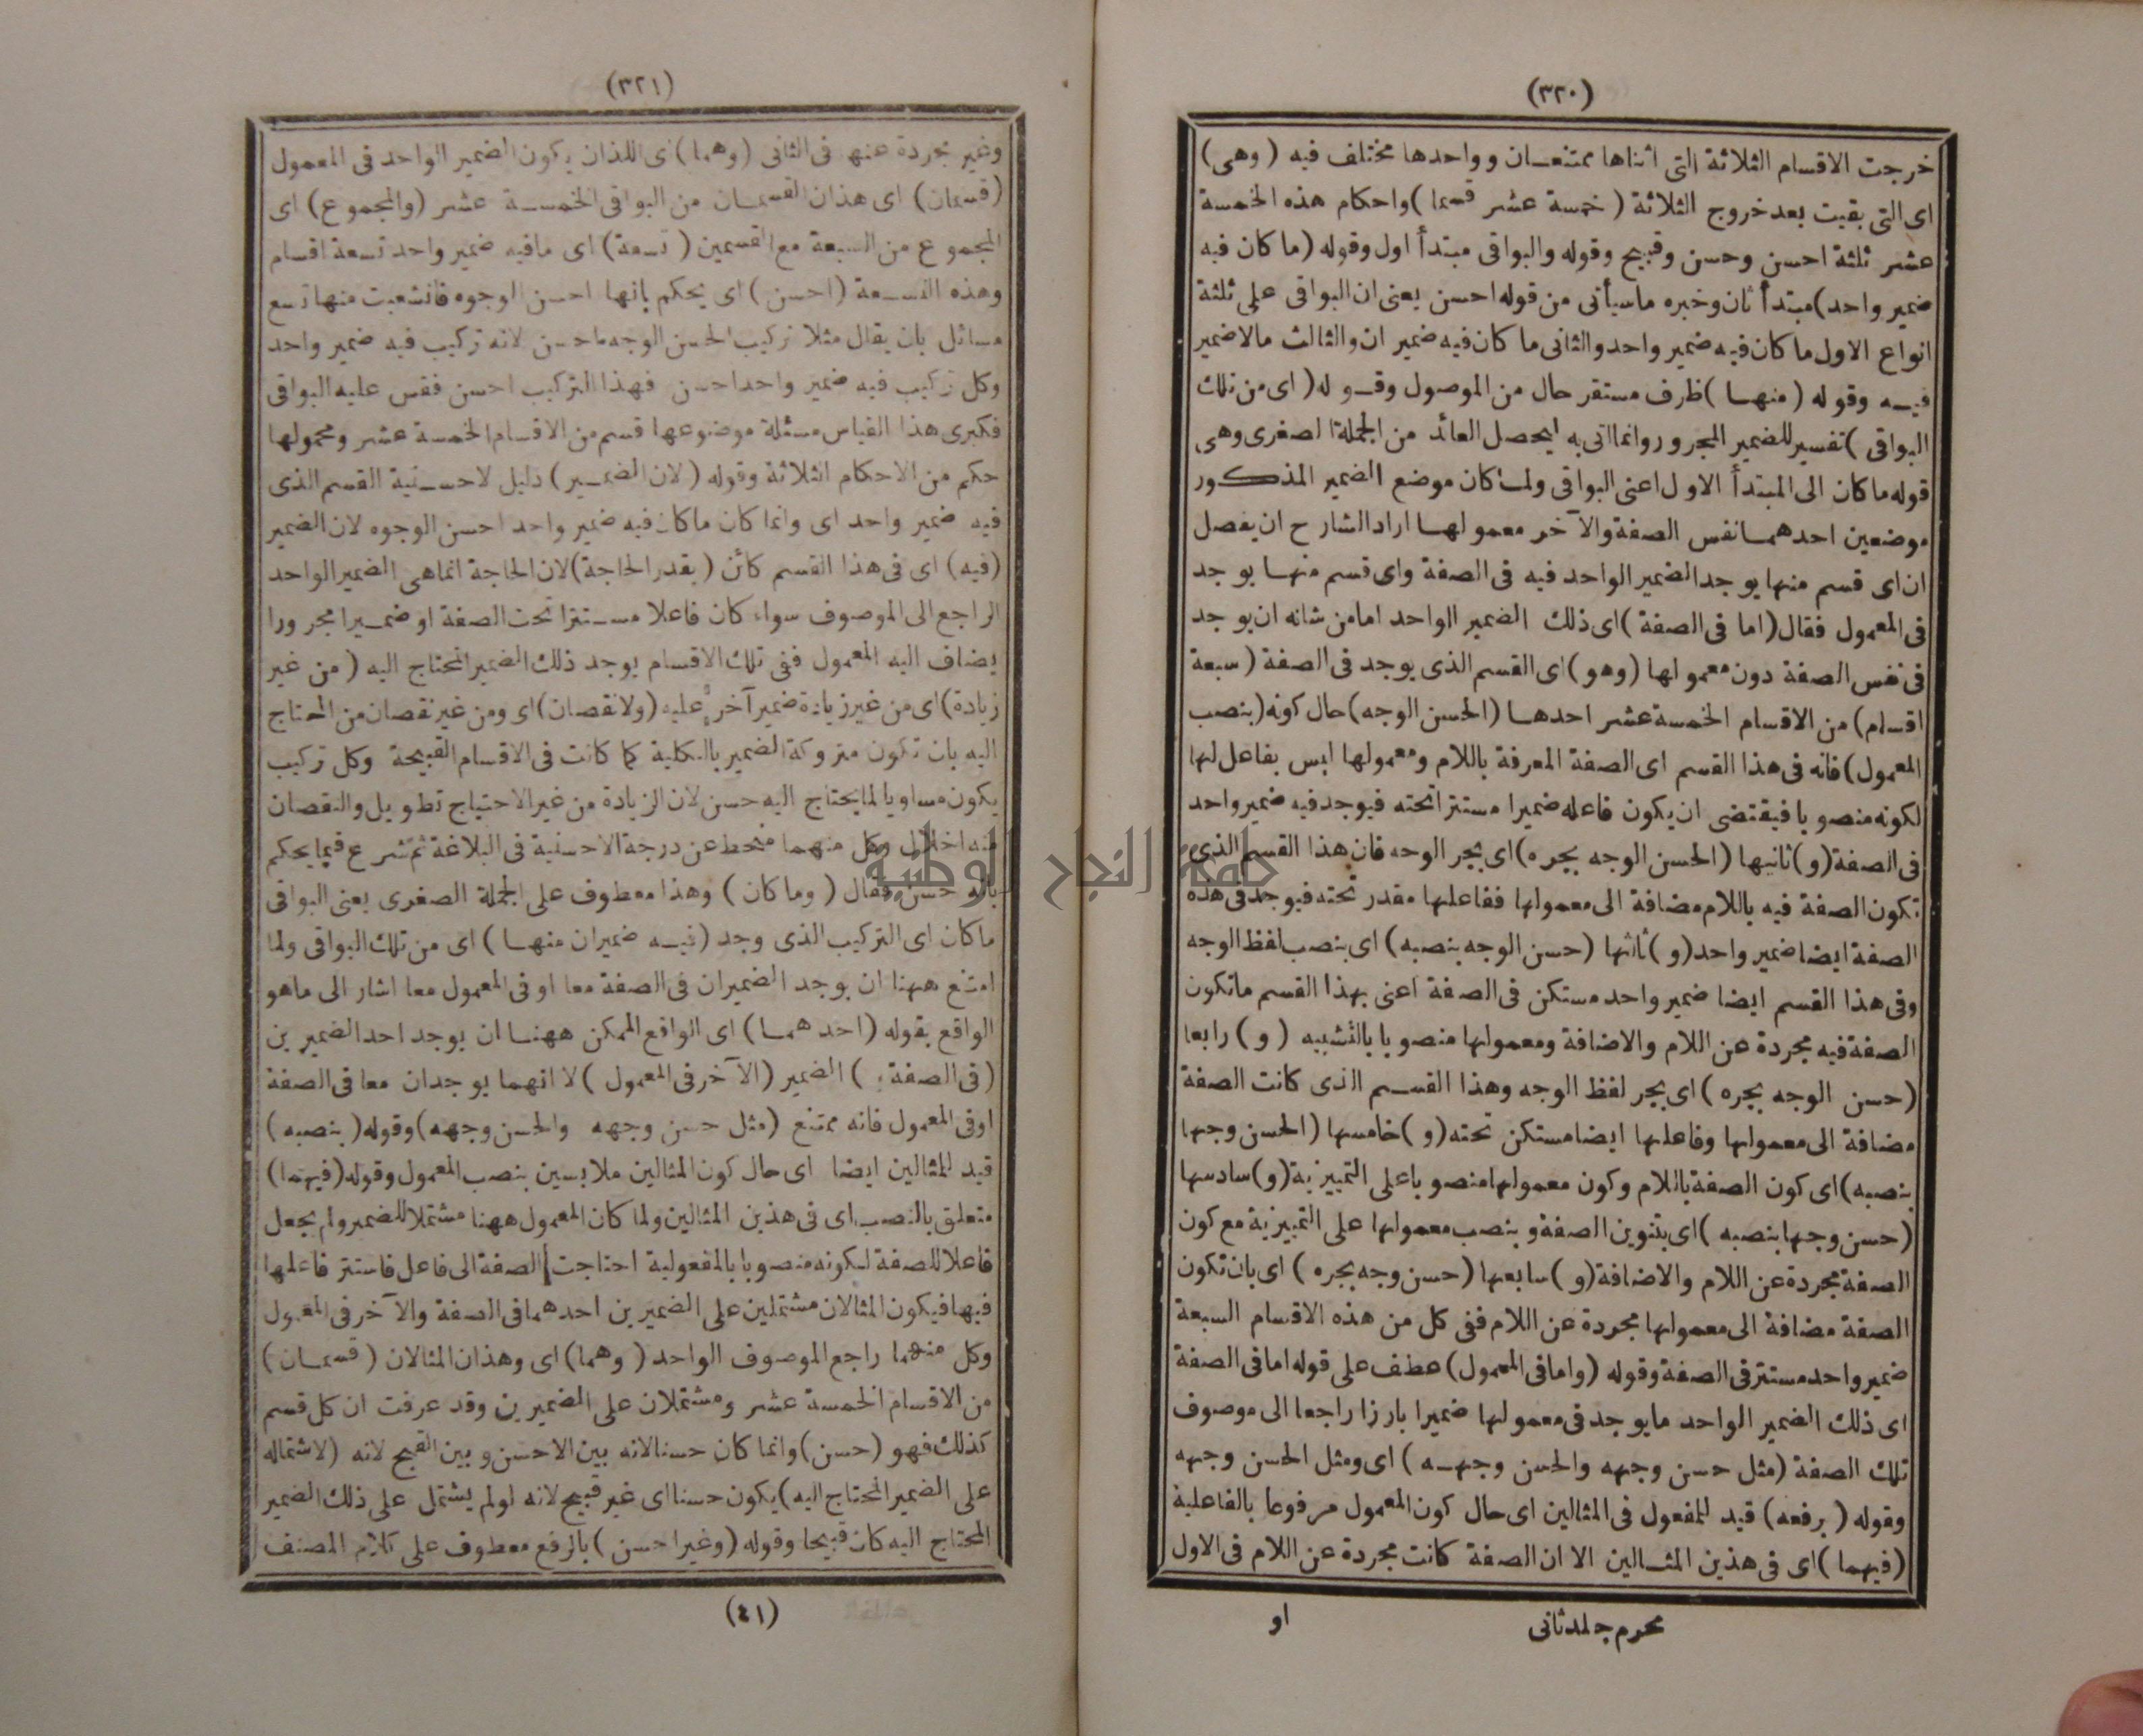 (٣٢٠)
خرجت الاقسام الثلاثة التى اثناها ممتنعـان وواحدها مختلف فيه (وهى)
اى التى بقيت بعد خروج الثلاثة (خمسة عشر قسما) واحكام هذه الخمسة
عشر ثلثة احسن وحسن وقبيح وقوله والبواقى مبتدأ اول وقوله (ما كان فيه
ضمير واحد) مبتدأ ثان وخبره ماسيأتى من قوله احسن يعنى ان البواقى على ثلثة
انواع الاول ما كان فيه ضمير واحد والثانى ما كان فيه ضمير ان والثالث مالا ضمير
فيـه وقوله (منهـا) ظرف مستقر حال من الموصول وقـوله (اى من تلك
البواقى) تفسير للضمير المجرور وانما اتى به ليحصل العائد من الجملة الصغرى وهى
قوله ما كان الى المبتدأ الاول اعنى البواقى ولما كان موضع الضمير المذكور
موضعين احدهمـا نفس الصفة والآخر معمولهـا اراد الشارح ان يفصل
ان اى قسم منها يوجد الضمير الواحد فيه فى الصفة واى قسم منهـا يوجد
فى المعمول فقال (اما فى الصفة) اى ذلك الضمير الواحد اما من شانه ان يوجد
فى نفس الصفة دون معمولها (وهو) اى القسم الذى يوجد فى الصفة (سبعة
اقسام) من الاقسام الخمسة عشر احدهـا (الحسن الوجه) حال كونه (بنصب
المعمول) فانه فى هذا القسم اى الصفة المعرفة باللام ومعمولها ليس بفاعل لها
لكونه منصوبا فيقتضى ان يكون فاعله ضميرا مستترا تحته فيوجد فيه ضمير واحد
فى الصفة (و) ثانيها (الحسن الوجه بجره) اى بجر الوجه فان هذا القسم الذى
تكون الصفة فيه باللام مضافة الى معمولها ففاعلها مقدر تحته فيوجد فى هذه
الصفة ايضا ضمير واحد (و) ثالثها (حسن الوجه بنصبه) اى بنصب لفظ الوجه
وفى هذا القسم ايضا ضمير واحد مستكن فى الصفة اعنى بهذا القسم ماتكون
الصفة فيه مجردة عن اللام والاضافة ومعمولها منصوبا بالتشبيه (و) رابعا
(حسن الوجه بجره) اى بجر لفظ الوجه وهذا القسـم الذى كانت الصفة
مضافة الى معمولها وفاعلها ايضا مستكن تحته (و) خامسها (الحسن وجها
بنصبه) اى كون الصفة باللام وكون معمولها منصوبا على التمييزية (و) سادسها
(حسن وجها بنصبه) اى بتنوين الصفة وبنصب معمولها على التمييزية مع كون
الصفة مجردة عن اللام والاضافة (و) سابعها (حسن وجه بجره) اى بان تكون
الصفة مضافة الى معمولها مجردة عن اللام ففى كل من هذه الاقسام السبعة
ضمير واحد مستتر فى الصفة وقوله (واما فى المعمول) عطف على قوله اما فى الصفة
اى ذلك الضمير الواحد مايوجد فى معمولها ضميرا بارزا راجعا الى موصوف
تلك الصفة (مثل حسن وجهه والحسن وجهـه) اى ومثل الحسن وجهه
وقوله (برفعه) قيد للمفعول فى المثالين اى حال كون المعمول مرفوعا بالفاعلية
(فيهما) اى فى هذين المثـالين الا ان الصفة كانت مجردة عن اللام فى الاول
محرم جلد ثانى
او
(٣٢١)
وغير مجردة عنها فى الثانى (وهما) اى اللذان يكون الضمير الواحد فى المعمول
(قسمان) اى هذان القسمـان من البواقى الخمسـة عشر (والمجموع) اى
المجموع من السبعة مع القسمين (تسعة) اى مافيه ضمير واحد تسعة اقسام
وهذه التسـعة (احسن) اى يحكم بانها احسن الوجوه فانشعبت منها تسع
مسائل بان يقال مثلا تركيب الحسن الوجه ماحسن لانه تركيب فيه ضمير واحد
وكل تركيب فيه ضمير واحد احسن فهذا التركيب احسن فقس عليه البواقى
فكبرى هذا القياس مسئلة موضوعها قسم من الاقسام الخمسة عشر ومحمولها
حكم من الاحكام الثلاثة وقوله (لان الضمـير) دليل لاحسـنية القسم الذى
فيه ضمير واحد اى وانما كان ماكان فيه ضمير واحد احسن الوجوه لان الضمير
(فيه) اى فى هذا القسم كائن (بقدر الحاجة) لان الحاجة انماهى الضمير الواحد
الراجع الى الموصوف سواء كان فاعلا مسـتترا تحت الصفة او ضمـيرا مجرورا
يضاف اليه المعمول ففى تلك الاقسام يوجد ذلك الضمير المحتاج اليه (من غير
زيادة) اى من غير زيادة ضمير آخر عليه (ولا نقصان) اى ومن غير نقصان من المحتاج
اليه بان تكون متروكة الضمير بالكلية كما كانت فى الاقسام القبيحة وكل تركيب
يكون مساويا لما يحتاج اليه حسن لان الزيادة من غير الاحتياج تطويل والنقصان
منه اخلال وكل منهما منحط عن درجة الاحسنية فى البلاغة ثم شرع فيما يحكم
بانه حسن فقال (وما كان) وهذا معطوف على الجملة الصغرى يعنى البواقى
ماكان اى التركيب الذى وجد (فيـه ضميران منهـا) اى من تلك البواقى ولما
امتنع ههنا ان يوجد الضميران فى الصفة معا او فى المعمول معا اشار الى ماهو
الواقع بقوله (احدهمـا) اى الواقع الممكن ههنـا ان يوجد احد الضميرين
(فى الصفة) الضمير (الآخر فى المعمول) لا انهما يوجدان معا فى الصفة
اوفى المعمول فانه ممتنع (مثل حسن وجهه والحسن وجهه) وقوله (بنصبه)
قيد للمثالين ايضا اى حال كون المثالين ملابسين بنصب المعمول وقوله (فيهما)
متعلق بالنصب اى فى هذين المثالين ولما كان المعمول ههنا مشتملا للضمير ولم يجعل
فاعلا للصفة لكونه منصوبا بالمفعولية احتاجت الصفة الى فاعل فاستتر فاعلها
فيها فيكون المثالان مشتملين على الضميرين احدهما فى الصفة والآخر فى المعمول
وكل منهما راجع الموصوف الواحد (وهما) اى وهذان المثالان (قسمـان)
من الاقسام الخمسة عشر ومشتملان على الضميرين وقد عرفت ان كل قسم
كذلك فهو (حسن) وانما كان حسنا لانه بين الاحسن وبين القبيح لانه (لاشتماله
على الضمير المحتاج اليه) يكون حسنا اى غير قبيح لانه لو لم يشتمل على ذلك الضمير
المحتاج اليه كان قبيحا وقوله (وغير احسن) بالرفع معطوف على كلام المصنف
(٤١)
جامعة النجاح الوطنية